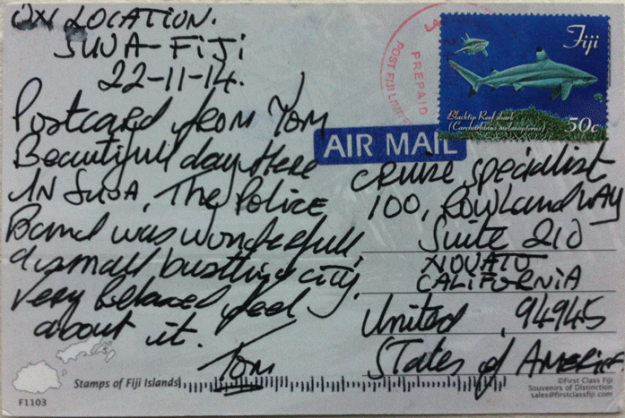 ON LOCATION.
SUVA-FIJI
22-11-14.
Postcard from Tom
Beautifull day Here
IN SUVA, The Police
Band was wonderfull
a small bustling city,
Very Relaxed feel
about it.
Tom
Fiji
PREPAID
POST FIJI
Blacktip Reef shark
(Carcharhinus melanopterus)
50c
AIR MAIL
cruise specialist
100, Rowland WAY
Suite 210
NOVATO
CALIFORNIA
United 94945
States of AMERICA
Stamps of Fiji Islands
F1103
©First Class Fiji
Souvenirs of Distinction
sales@firstclassfiji.com